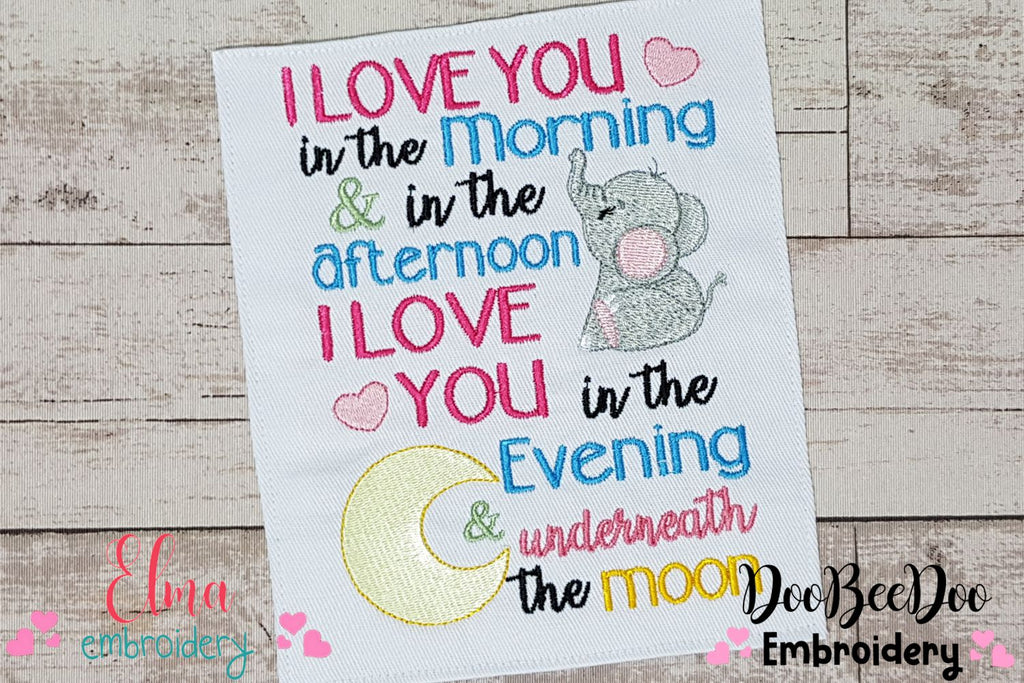 I LOVE YOU
in the Morning
& in the
afternoon
I LOVE
YOU in the
Evening
& underneath
the moon
Elma
embroidery
DooBeeDoo
Embroidery